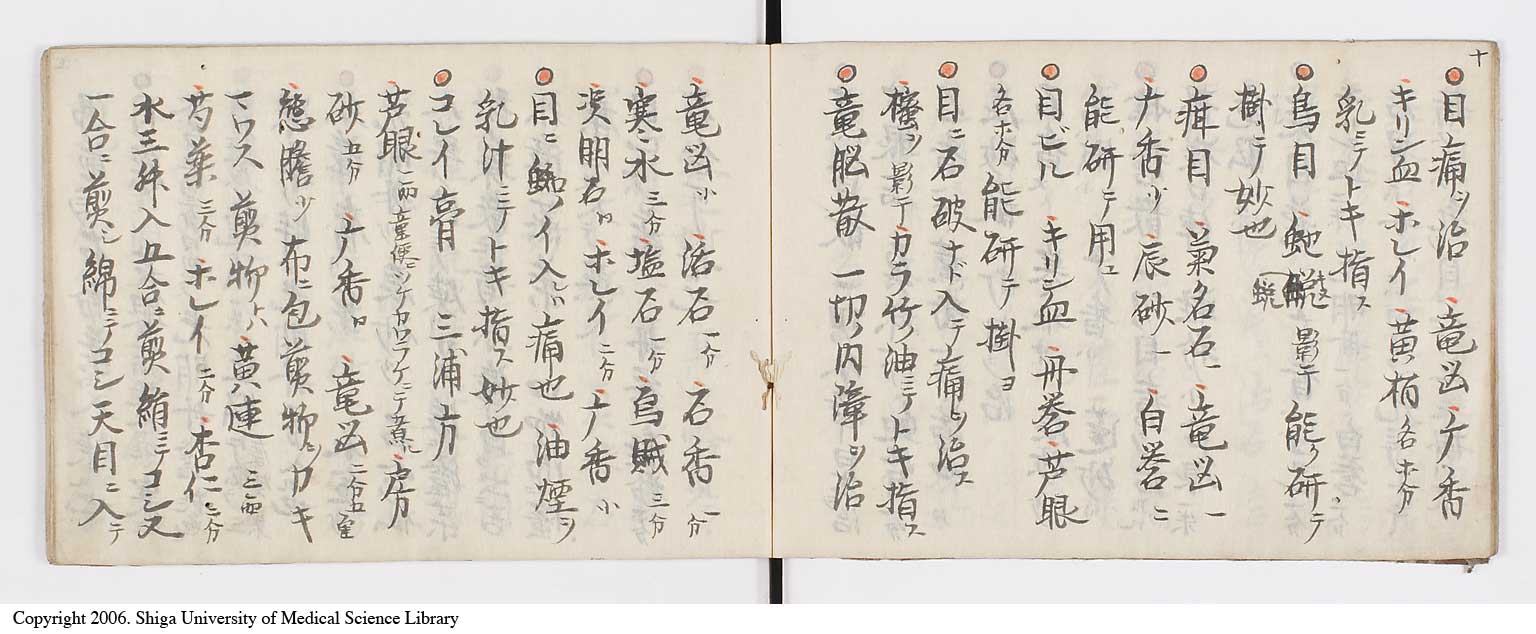 十
目痛ヲ治 竜凶 ケ香
キリン血 ホレイ 黄栢 各ホ分
乳ミテトキ指ス
鳥目 影干 能ク研ニテ
掛ニテ妙也
痺目 菊名石一 竜凶一
ケ香少 辰砂一 白礬二
能研ニテ用ユ
目ビル キリン血 丹礬 芦眼
各ホ分能研テ掛ヨ
目ニ石破ナド入テ痛ヲ治ス
影干カラ竹ノ油ミテトキ指ス
竜脳散 一切ノ内障ヲ治
竜凶少 活石一分 石香一分
寒水三分 塩石一分 烏賊三分
ホレイ二分 ケ香小
目ニ イ入レハ痛也 油煙ヲ
乳汁ミテトキ指ス妙也
コレイ膏 三浦方
芦眼一両 童便ツケカワラケニテ煮ル 房
砂五分 ケ香 竜凶二分五
熊膽少 布ニ包 煎物ニカキ
マワス 煎物トハ 黄連三両
芍薬三分 ホレイ二分 杏仁二分
水三舛入五合ニ煎 絹ミテコシ又
一合ニ煎シ綿ニテコシ天目ニ入テ
Copyright 2006. Shiga University of Medical Science Library